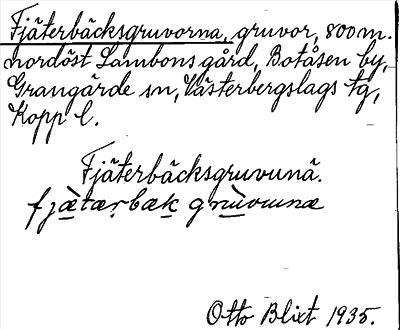 Fjäterbäcksgruvorna, gruvor, 800 m.
nordöst Lambons gård, Botåsen by,
Grangärde sn, Västerbergslags tg,
Kopp l.
Fjäterbäcksgruvunä.
Otto Blixt 1935.